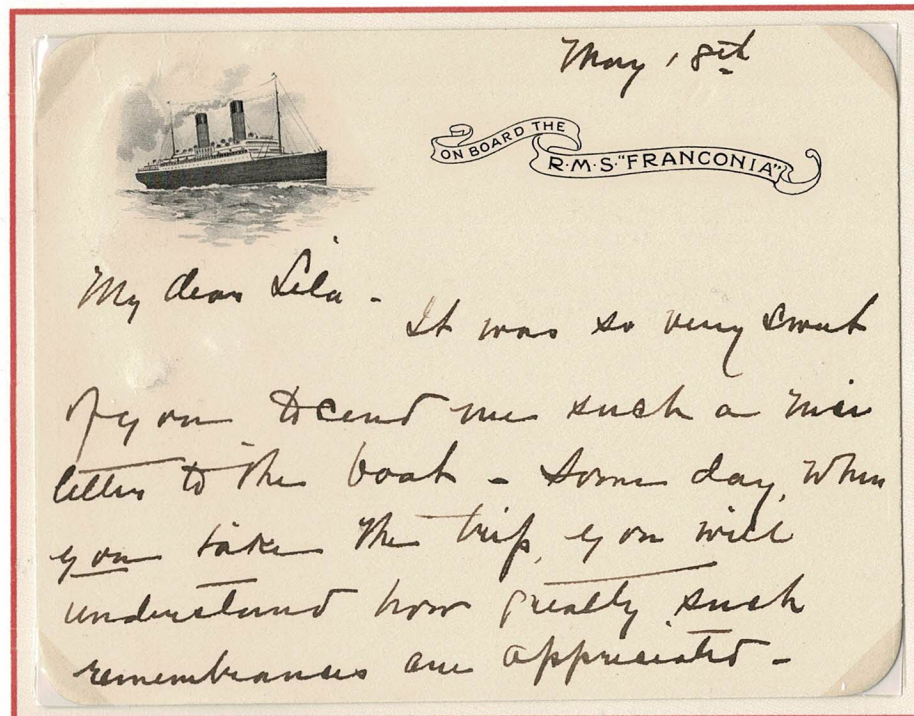 May 18th
ON BOARD THE
R·M·S·"FRANCONIA"
My dear Lila -
It was so very sweet
of you to send me such a nice
letter to the boat - Some day, when
you take the trip, you will
understand how greatly such
remembrances are appreciated -